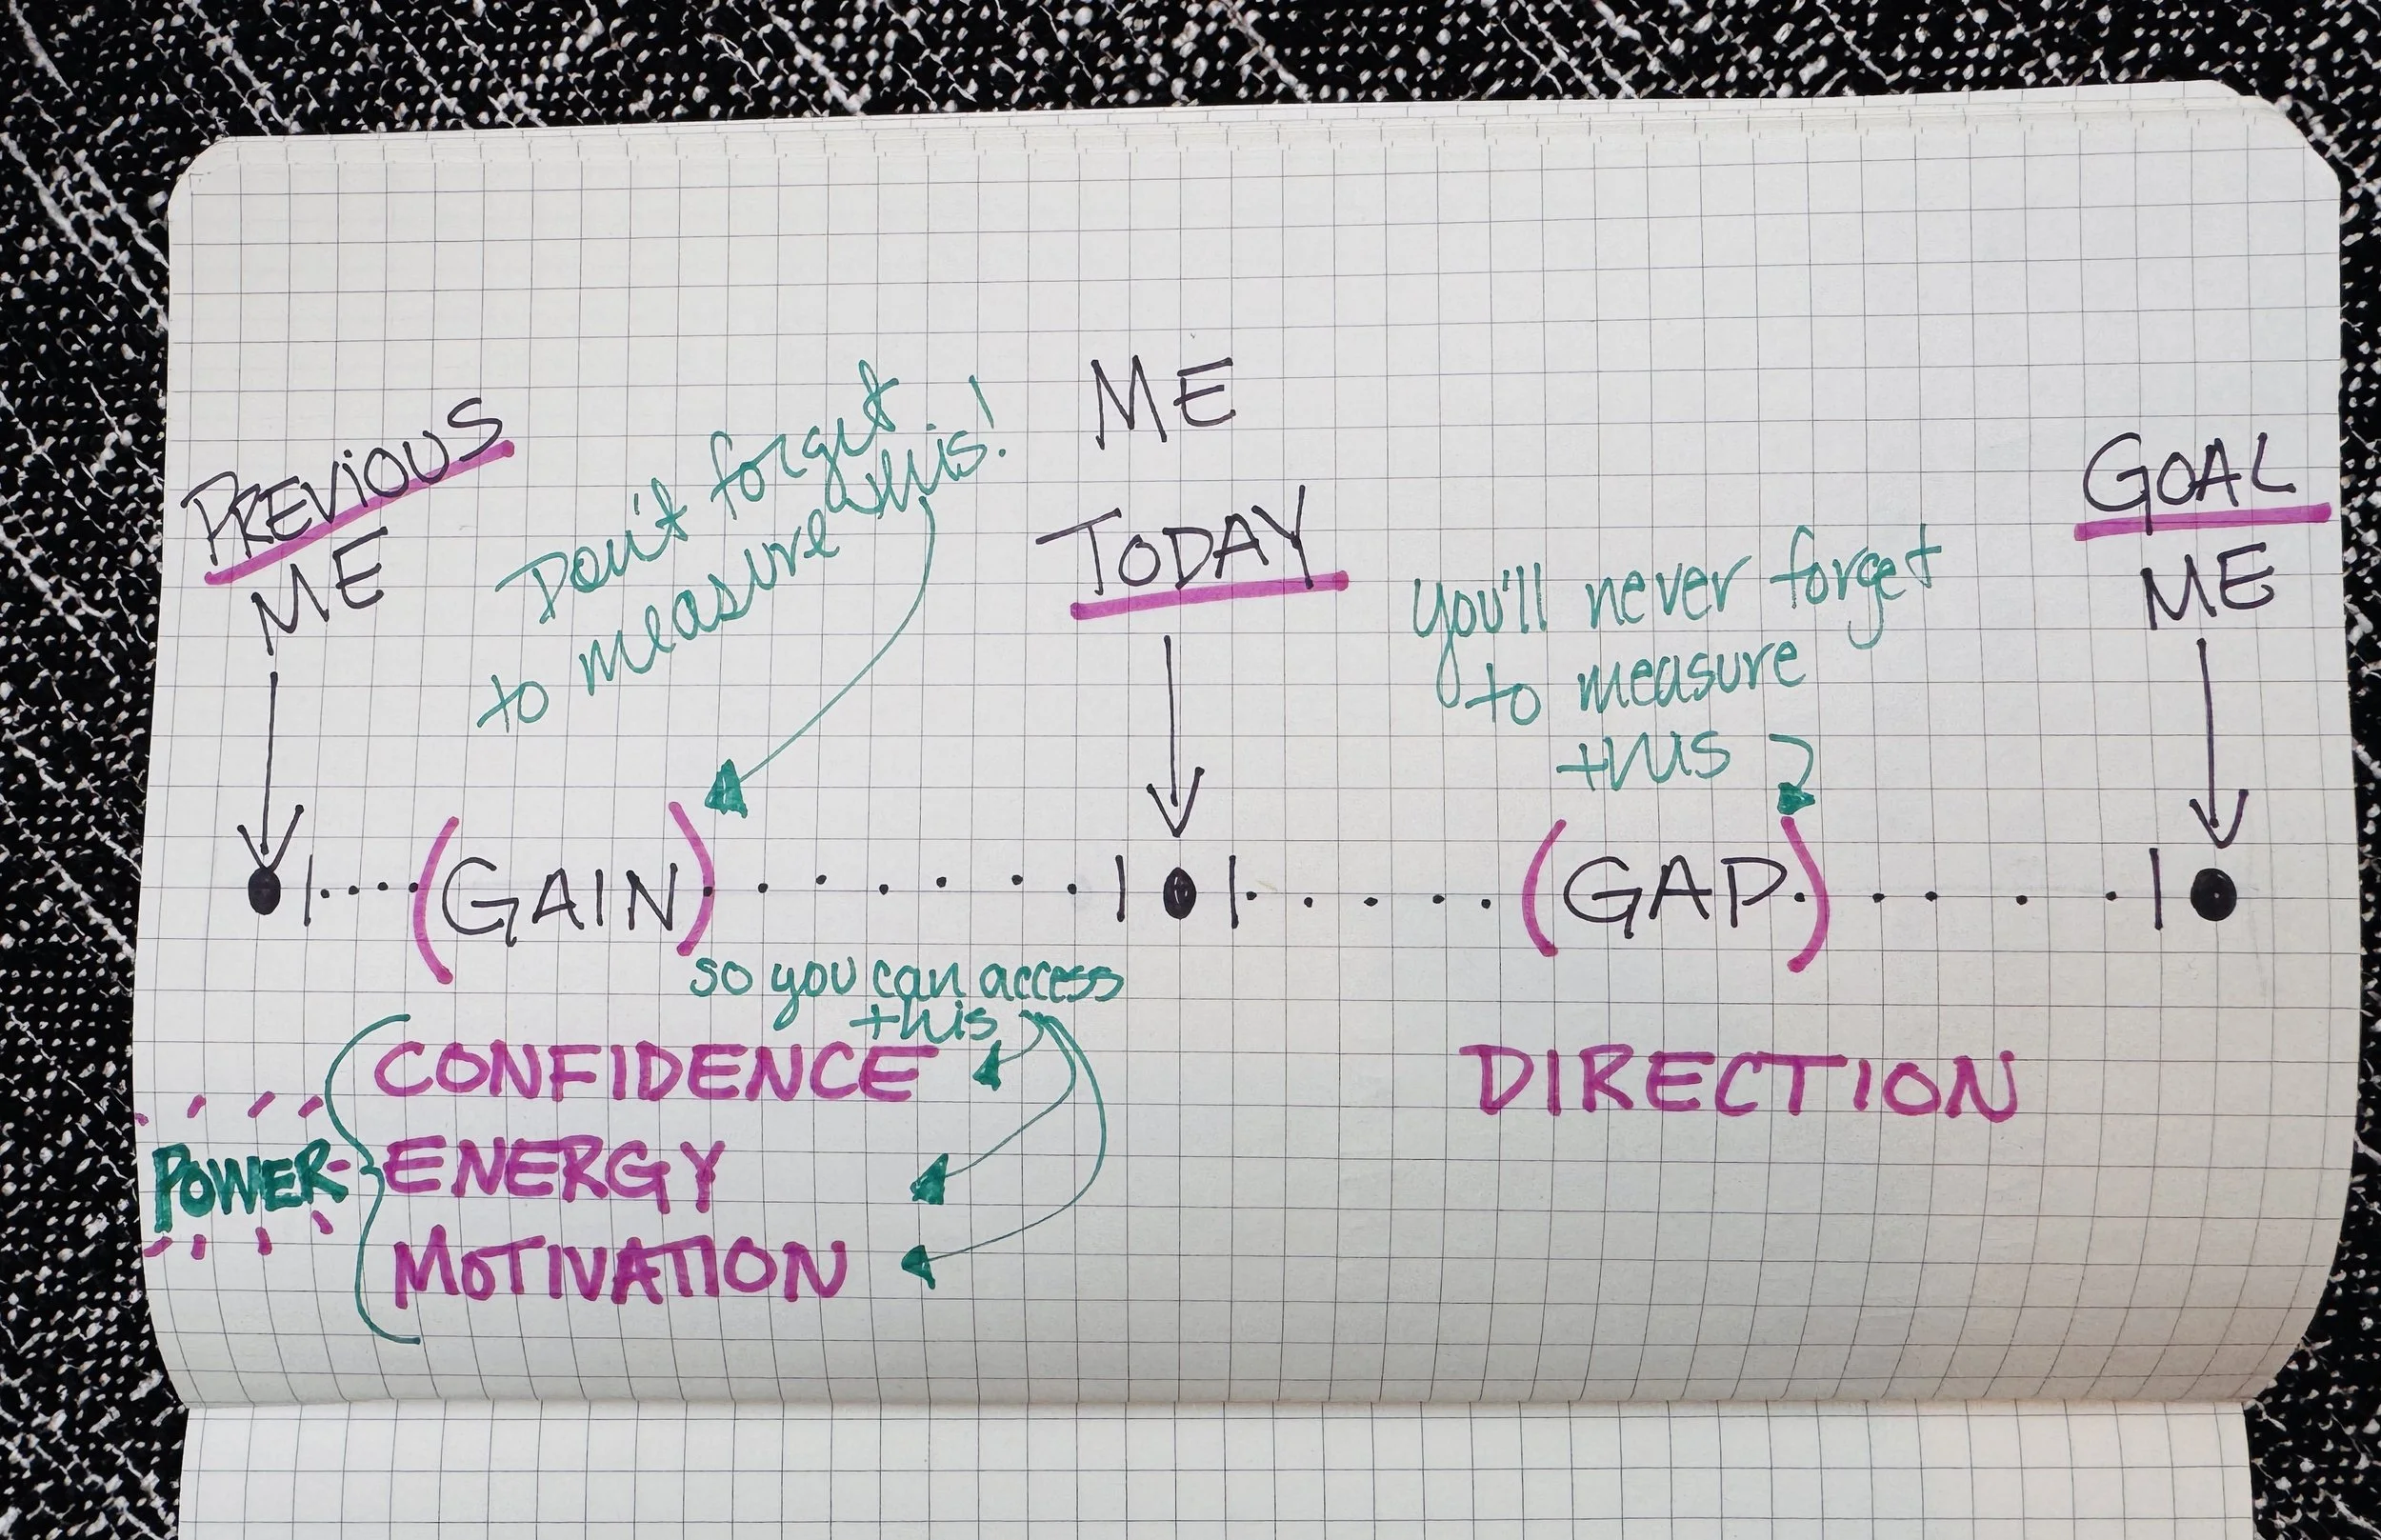 PREVIOUS
ME
Don't forget
to measure this!
ME
TODAY
You'll never forget
to measure
this
GOAL
ME
(GAIN)
(GAP)
so you can access
this
POWER
CONFIDENCE
ENERGY
MOTIVATION
DIRECTION